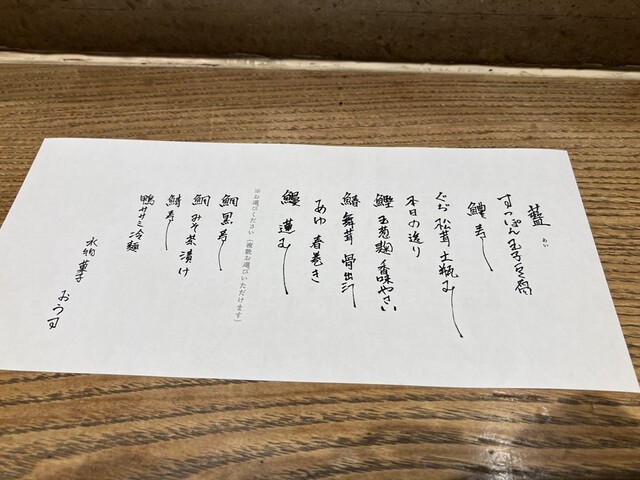 藍
あい
すっぽん玉子豆腐
鱧寿し
ぐぢ 松茸 土瓶むし
本日の造り
鰹 玉葱麹 香味やさい
鱚 舞茸 骨出汁
あゆ 春巻き
鰻 蓮むし
※お選びください(複数お選びいただけます)
鯛黒寿し
鯛 みそ茶漬け
鯖寿し
鴨ササミ冷麺
水物 菓子 おうす